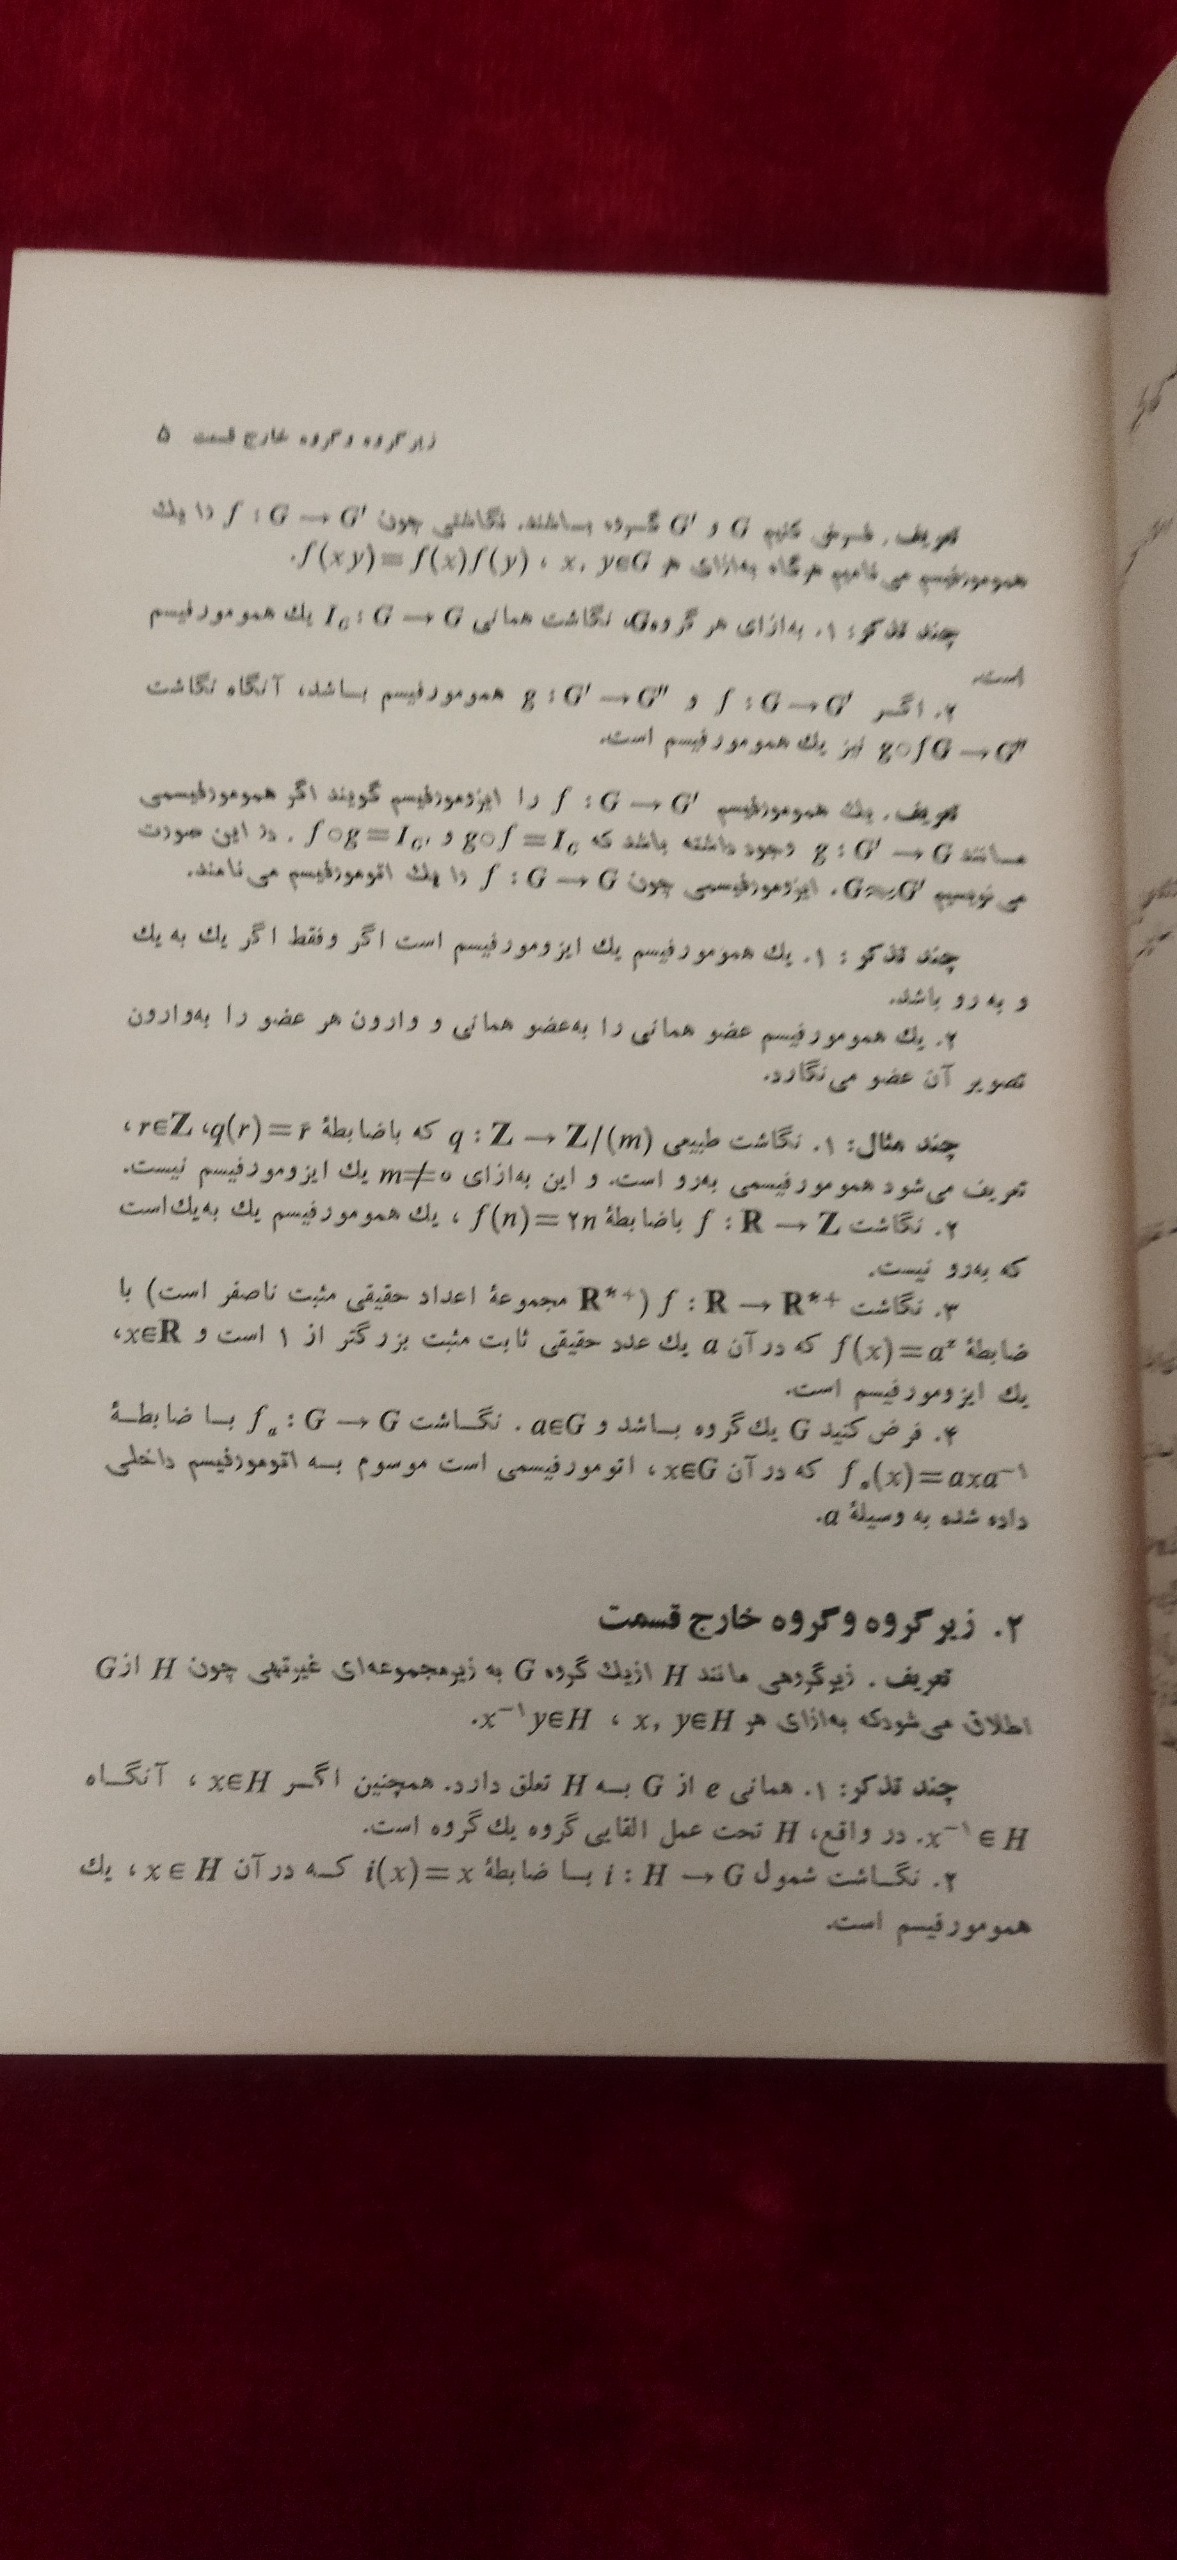 زیرگروه و گروه خارج قسمت ۵
تعریف. فرض کنیم G و G′ گروه باشند. نگاشتی چون f : G → G′ را یک
همومورفیسم می‌نامیم هرگاه به‌ازای هر x, y∈G ، f(xy)=f(x)f(y).
چند تذکر: ۱. به‌ازای هر گروه G، نگاشت همانی I_G : G → G یک همومورفیسم
است.
۲. اگر f : G → G′ و g : G′ → G″ همومورفیسم باشد، آنگاه نگاشت
g∘fG → G″ نیز یک همومورفیسم است.
تعریف. یک همومورفیسم f : G → G′ را ایزومورفیسم گویند اگر همومورفیسمی
مانند g : G′ → G وجود داشته باشد که g∘f=I_G و f∘g=I_G′ . در این صورت
می‌نویسیم G≈G′. ایزومورفیسمی چون f : G → G را یک اتومورفیسم می‌نامند.
چند تذکر : ۱. یک همومورفیسم یک ایزومورفیسم است اگر و فقط اگر یک به یک
و به رو باشد.
۲. یک همومورفیسم عضو همانی را به‌عضو همانی و وارون هر عضو را به‌وارون
تصویر آن عضو می‌نگارد.
چند مثال: ۱. نگاشت طبیعی q : Z → Z/(m) که باضابطهٔ q(r)=r̄، r∈Z ،
تعریف می‌شود همومورفیسمی به‌رو است. و این به‌ازای m≠۰ یک ایزومورفیسم نیست.
۲. نگاشت f : R → Z باضابطهٔ f(n)=۲n ، یک همومورفیسم یک به‌یک‌است
که به‌رو نیست.
۳. نگاشت f : R → R*⁺ (R*⁺ مجموعهٔ اعداد حقیقی مثبت ناصفر است) با
ضابطهٔ f(x)=aˣ که در آن a یک عدد حقیقی ثابت مثبت بزرگتر از ۱ است و x∈R،
یک ایزومورفیسم است.
۴. فرض کنید G یک گروه باشد و a∈G . نگاشت fₐ : G → G با ضابطهٔ
fₐ(x)=axa⁻¹ که در آن x∈G ، اتومورفیسمی است موسوم به اتومورفیسم داخلی
داده شده به وسیلهٔ a.
۲. زیرگروه و گروه خارج قسمت
تعریف . زیرگروهی مانند H ازیک گروه G به زیرمجموعه‌ای غیرتهی چون H از G
اطلاق می‌شودکه به‌ازای هر x, y∈H ، x⁻¹y∈H.
چند تذکر: ۱. همانی e از G به H تعلق دارد. همچنین اگر x∈H ، آنگاه
x⁻¹∈H. در واقع، H تحت عمل القایی گروه یک گروه است.
۲. نگاشت شمول i : H → G با ضابطهٔ i(x)=x که در آن x∈H ، یک
همومورفیسم است.